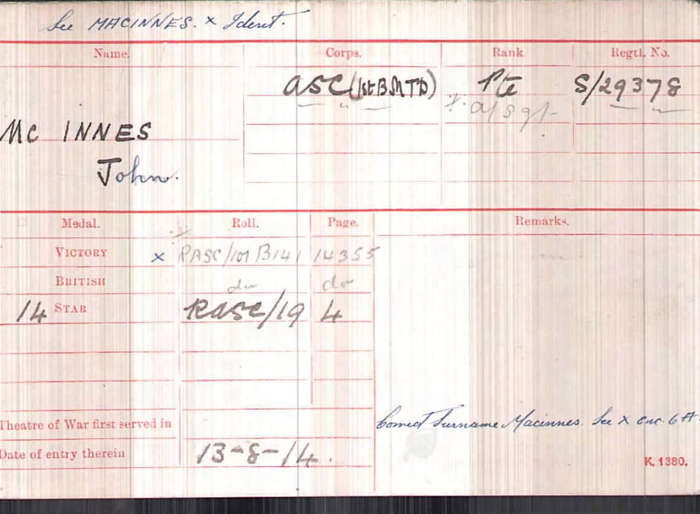 See MACINNES. x Ident.
Name. Corps. Rank Regtl. No.
ASC (1st B.M.T.D) Pte S/29378
÷ a/Sgt
Mc INNES
John.
Medal. Roll. Page. Remarks.
VICTORY x RASC/101 B141 14355
BRITISH do do
14 STAR RASC/19 4
Theatre of War first served in
Correct Surname Macinnes. See x
Date of entry therein 13-8-14.
K. 1380.